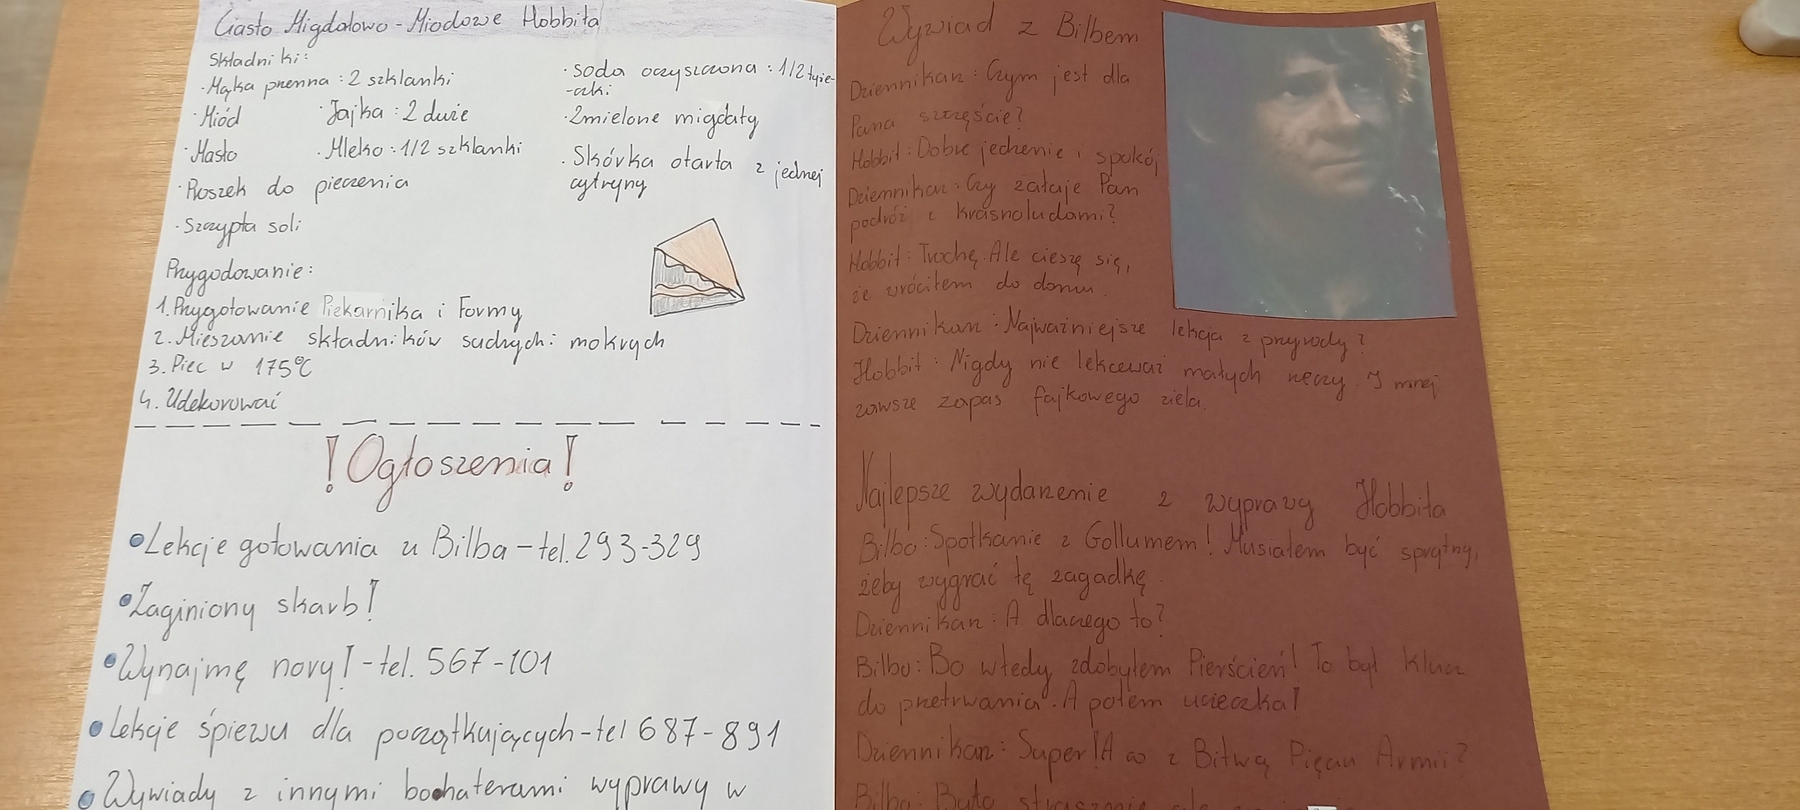 Ciasto Migdałowo-Miodowe Hobbita
Składniki:
· Mąka pszenna : 2 szklanki
· Miód
· Jajka : 2 duże
· Masło
· Mleko : 1/2 szklanki
· Proszek do pieczenia
· Szczypta soli
· soda oczyszczona : 1/2 łyże-
-czki
· Zmielone migdały
· Skórka otarta z jednej
cytryny
Przygodowanie:
1. Przygotowanie Piekarnika i Formy
2. Mieszanie składników suchych i mokrych
3. Piec w 175°C
4. Udekorować
! Ogłoszenia !
• Lekcje gotowania u Bilba – tel. 293-329
• Zaginiony skarb!
• Wynajmę nory! - tel. 567-101
• Lekcje śpiewu dla początkujących - tel 687-891
• Wywiady z innymi bohaterami wyprawy w
Wywiad z Bilbem
Dziennikarz : Czym jest dla
Pana szczęście?
Hobbit : Dobre jedzenie i spokój
Dziennikarz : Czy żałuje Pan
podróż z krasnoludami?
Hobbit : Trochę. Ale cieszę się,
że wróciłem do domu.
Dziennikarz : Najważniejsze lekcja z przyrody?
Hobbit : Nigdy nie lekceważ małych rzeczy. I miej
zawsze zapas fajkowego ziela.
Najlepsze wydarzenie z wyprawy Hobbita
Bilbo : Spotkanie z Gollumem! Musiałem być sprytny,
żeby wygrać tę zagadkę.
Dziennikarz : A dlaczego to?
Bilbo : Bo wtedy zdobyłem Pierścień! To był klucz
do przetrwania. A potem ucieczka!
Dziennikarz : Super! A co z Bitwą Pięciu Armii?
Bilbo : Było strasznie, ale